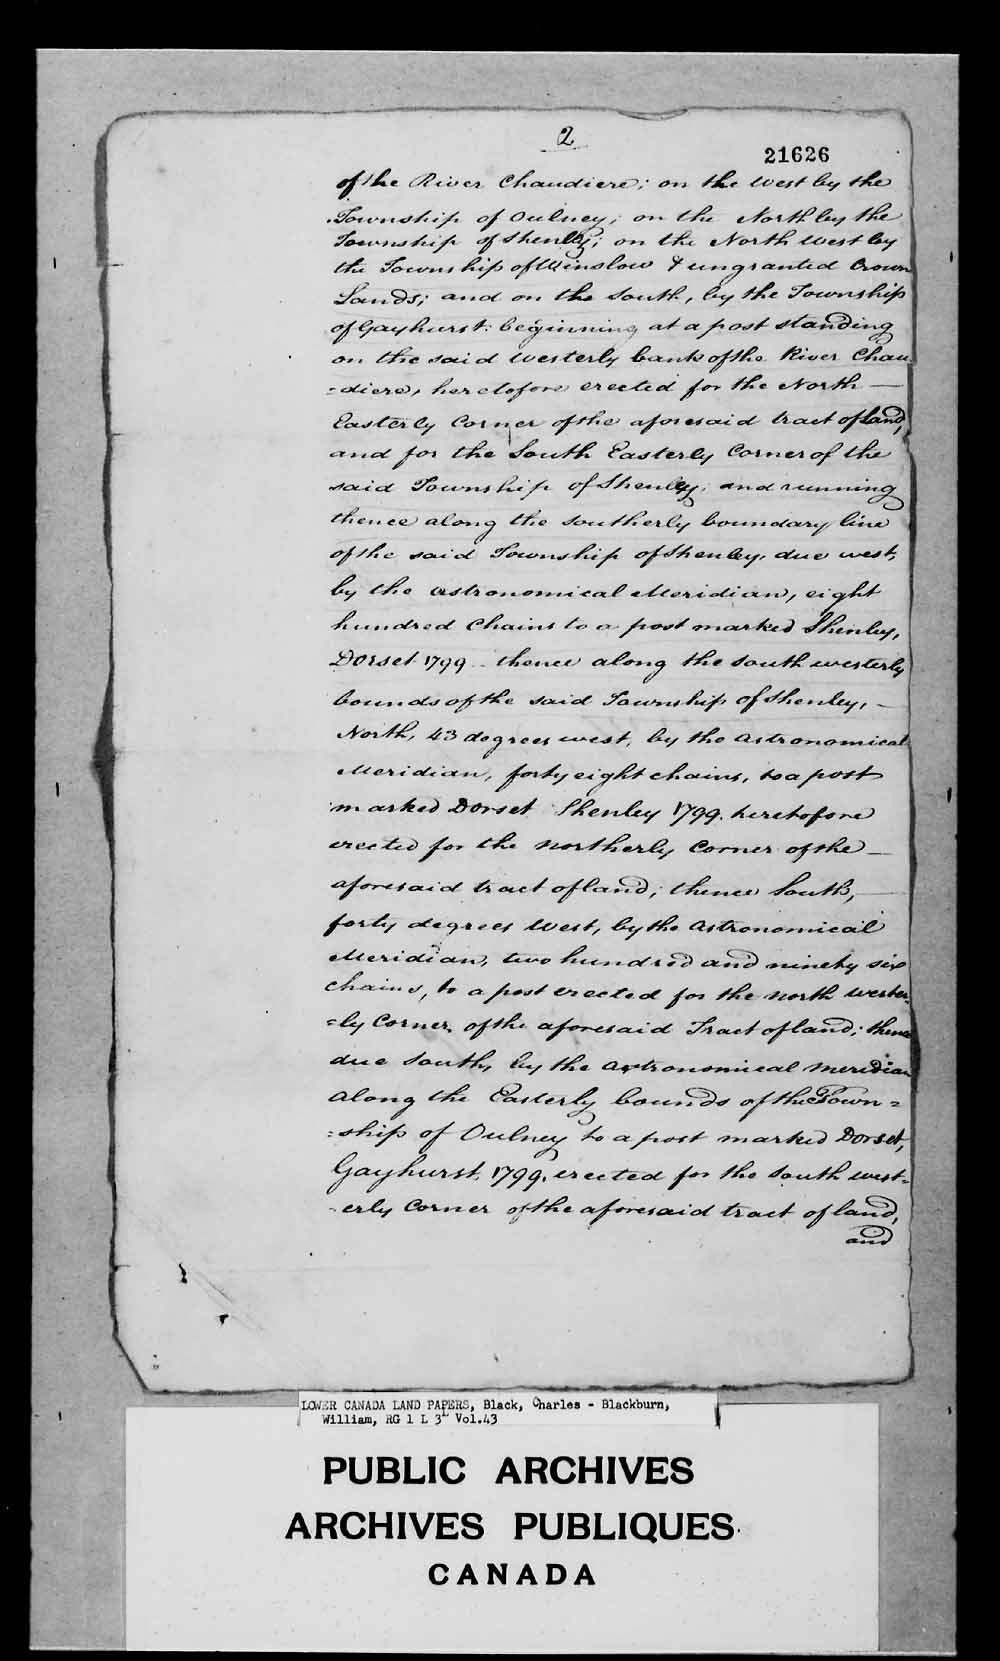 2
21626
of the River Chaudiere; on the West by the
Township of Oulney; on the North by the
Township of Shenley; on the North west by
the Township of Winslow & ungranted Crown
Lands; and on the South, by the Township
of Gayhurst: beginning at a post standing
on the said Westerly bank of the River Chau
=diere, heretofore erected for the North —
Easterly Corner of the aforesaid tract of land,
and for the South Easterly Corner of the
said Township of Shenley; and running
thence along the southerly boundary line
of the said Township of Shenley, due west,
by the astronomical Meridian, eight
hundred Chains to a post marked Shenley,
Dorset 1799 - thence along the south westerly
bounds of the said Township of Shenley, -
North, 43 degrees west, by the astronomical
Meridian, forty eight chains, to a post
marked Dorset Shenley 1799. heretofore
erected for the northerly Corner of the —
aforesaid tract of land; thence South, —
forty degrees West, by the Astronomical
Meridian, two hundred and ninety six
chains, to a post erected for the north wester=
=ly Corner of the aforesaid Tract of land; thence
due South, by the astronomical meridian
along the Easterly bounds of the Town=
=ship of Oulney to a post marked Dorset,
Gayhurst, 1799. erected for the south west=
-erly Corner of the aforesaid tract of land,
and
LOWER CANADA LAND PAPERS, Black, Charles - Blackburn,
William, RG 1 L 3L Vol.43
PUBLIC ARCHIVES
ARCHIVES PUBLIQUES
CANADA